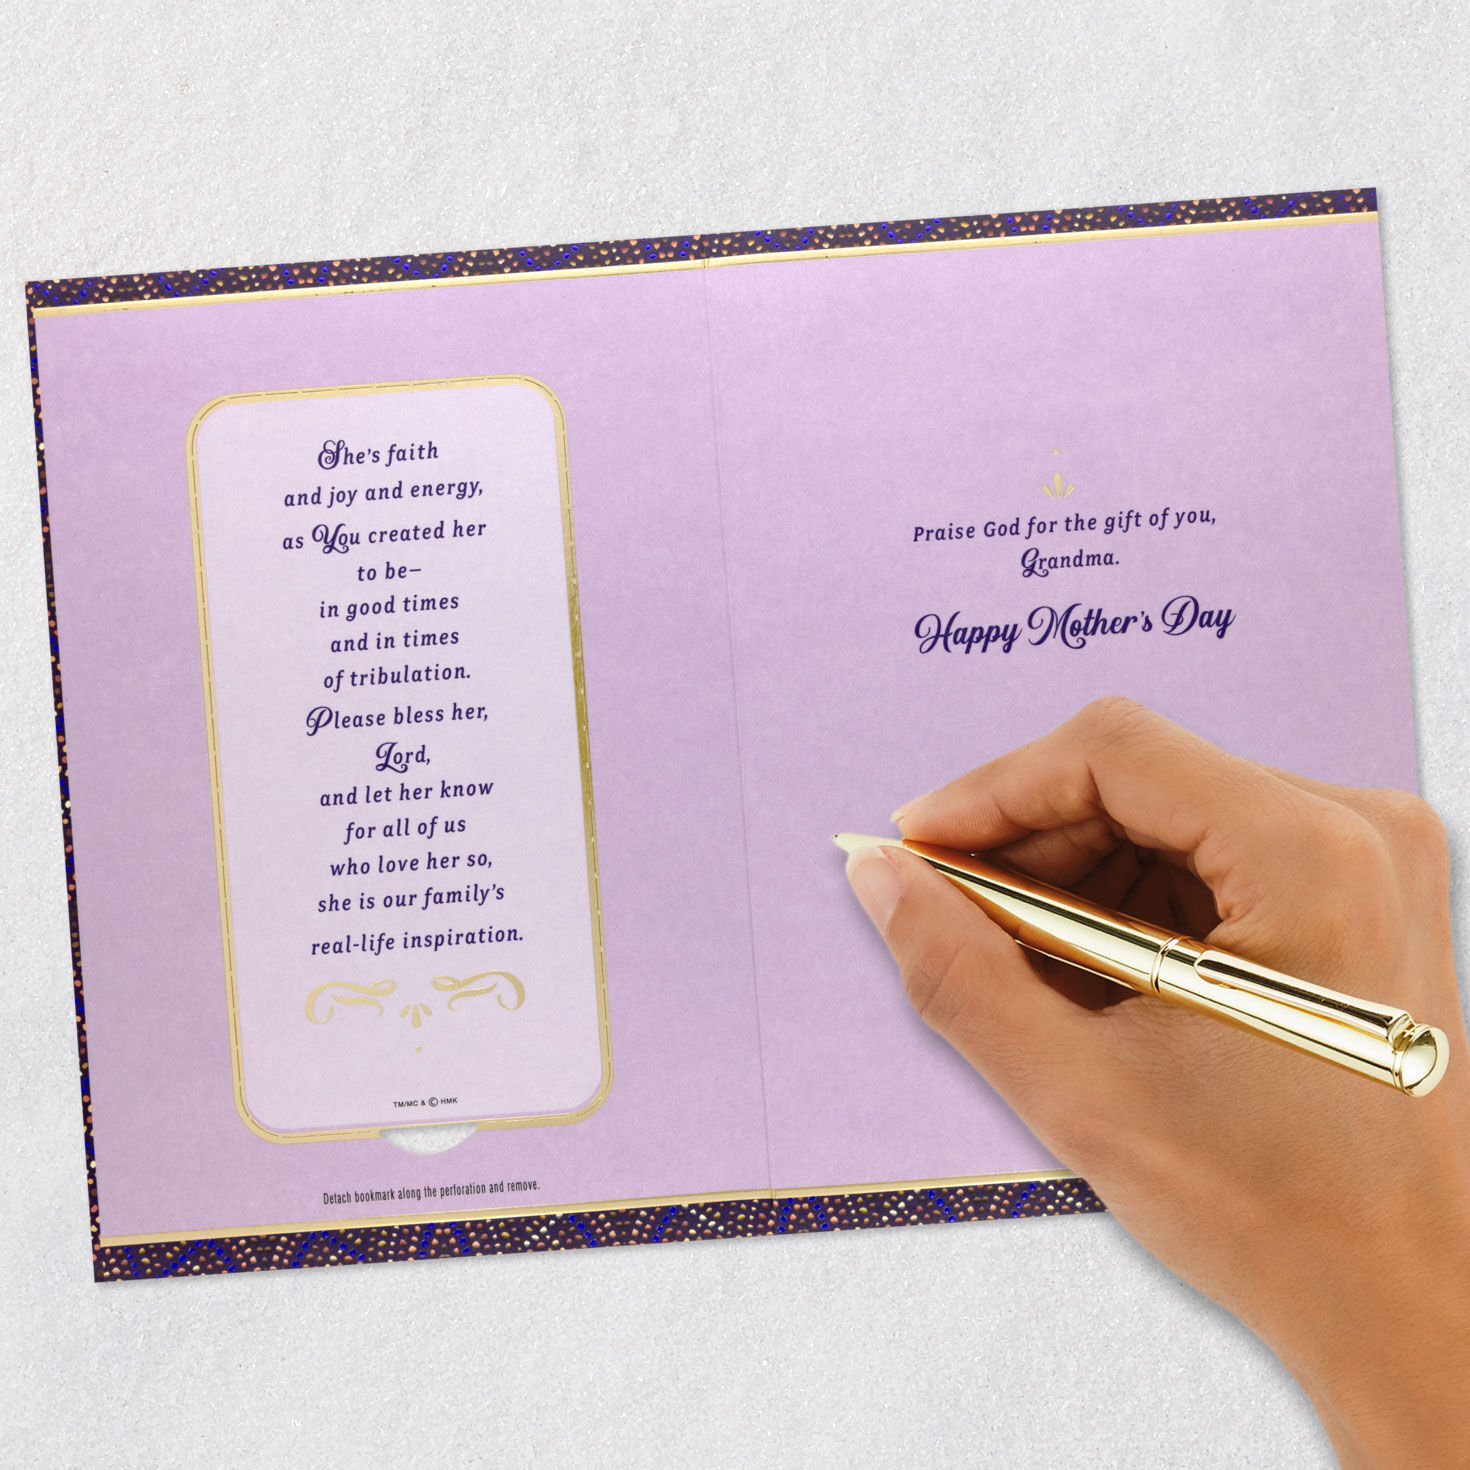 She's faith
and joy and energy,
as You created her
to be–
in good times
and in times
of tribulation.
Please bless her,
Lord,
and let her know
for all of us
who love her so,
she is our family's
real-life inspiration.
TM/MC & © HMK
Detach bookmark along the perforation and remove.
Praise God for the gift of you,
Grandma.
Happy Mother's Day